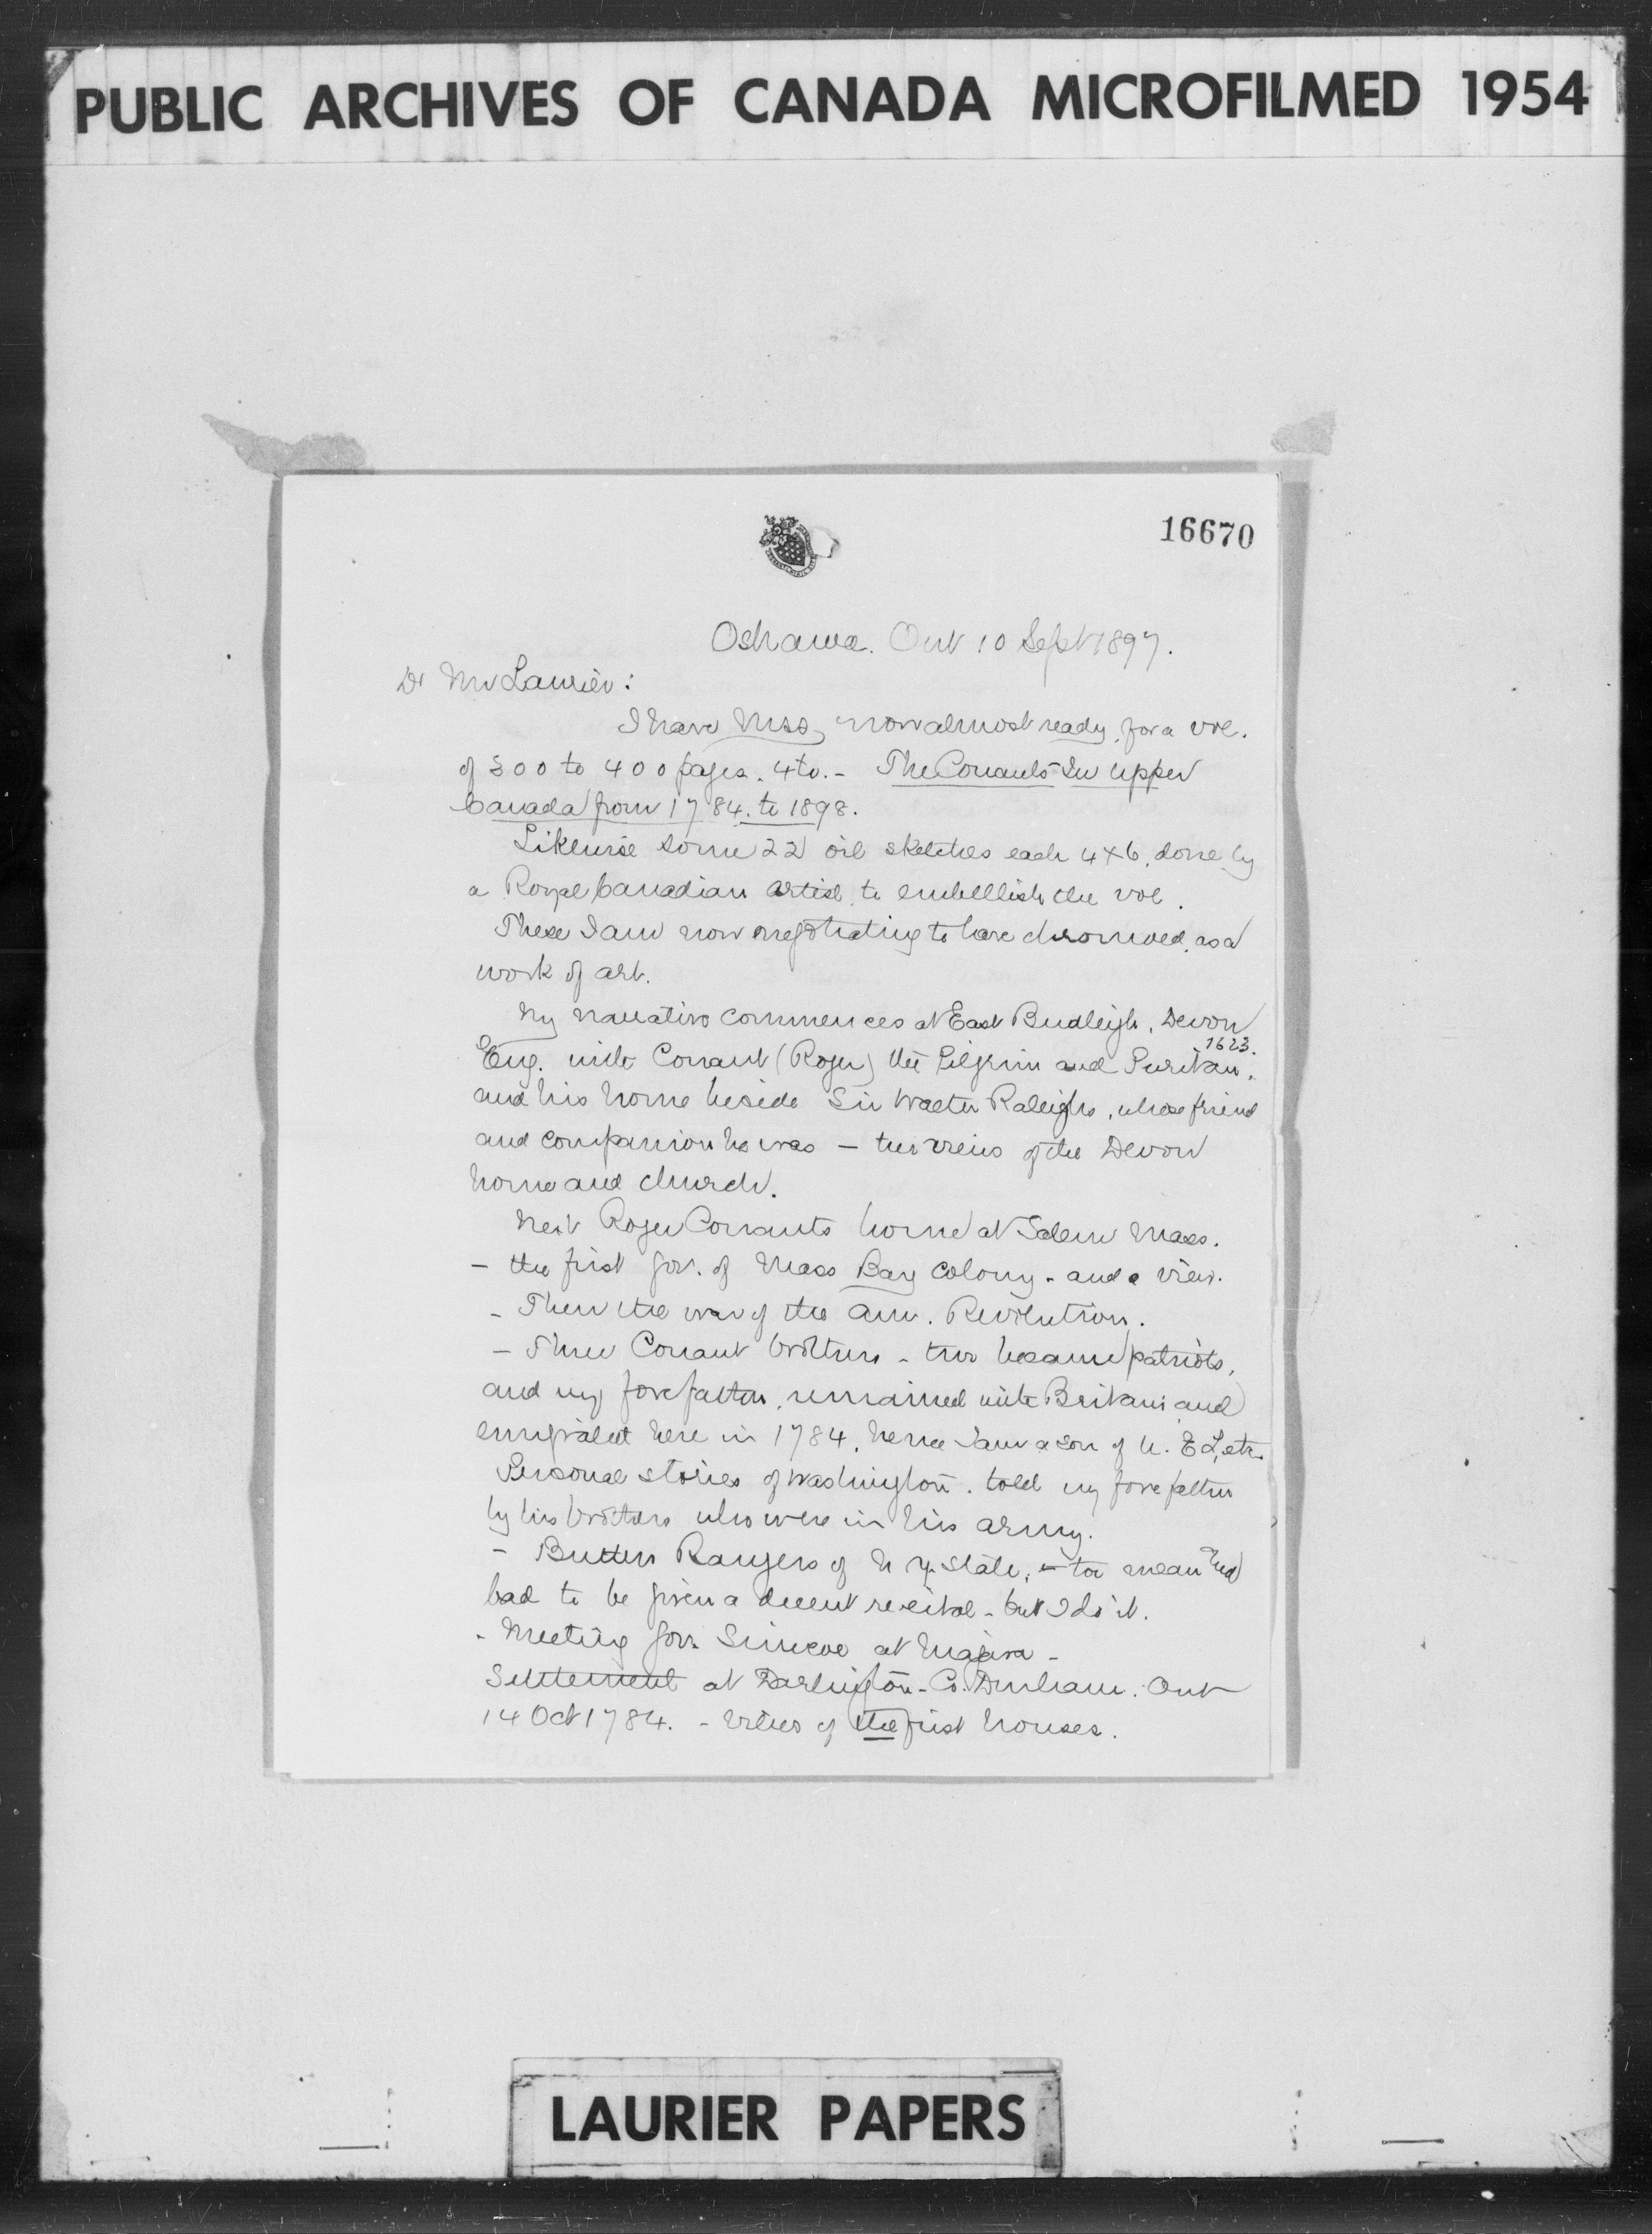 PUBLIC ARCHIVES OF CANADA MICROFILMED 1954
16670
Oshawa. Ont 10 Sept 1897.
Dr Mr Laurier:
I have Mss, now almost ready, for a vol.
of 300 to 400 pages. 4to. - The Conants In Upper
Canada from 1784. to 1898.
Likewise some 22 oil sketches each 4x6, done by
a Royal Canadian artist, to embelllish the vol.
These I am now negotiating to have chromoed, as a
work of art.
My narative commences at East Budleigh, Devon
1623.
Eng. with Conant (Roger) the Pilgrim and Puritan.
and his home beside Sir Walter Raleighs, whose friend
and companion he was - views of the Devon
home and church.
Next Roger Conants home at Salem Mass.
- the first Gov. of Mass Bay Colony - and a view.
- Then the war of the Am. Revolution.
- Three Conant brothers - two became patriots,
and my forefather, remained with Britain and
emigrated here in 1784, hence I am a son of U. E L, etc.
Personal stories of Washington. told my forefather
by his brothers who were in his army.
- Butlers Rangers of N. Y. State, - too mean and
bad to be given a decent recital - but I do it.
- Meeting Gov. Simcoe at Niagara -
Settlement at Darlington - Co. Durham. Ont
14 Oct 1784. - Views of the first houses.
LAURIER PAPERS